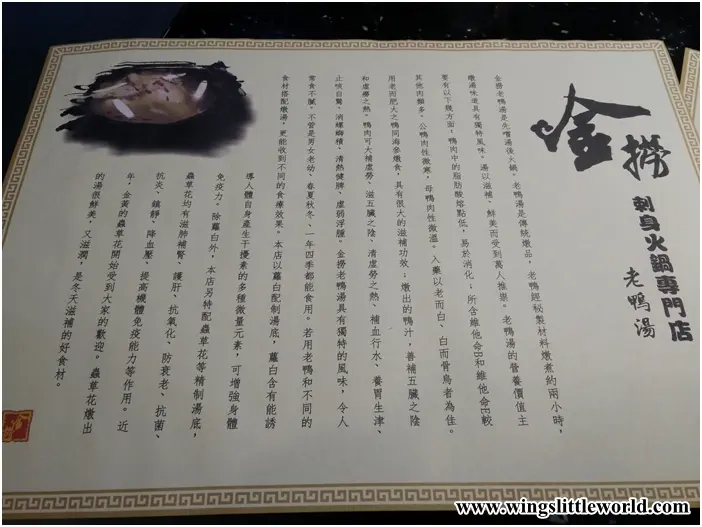 金撈
刺身火鍋專門店
老鴨湯
金撈老鴨湯是先嚐湯後火鍋。老鴨湯是傳統燉品，老鴨經秘製材料燉煮約兩小時，
燉滷味道具有獨特風味。湯以滋補、鮮美而受到萬人推崇。老鴨湯的營養價值主
要有以下幾方面：鴨肉中的脂肪酸熔點低，易於消化；所含維他命B和維他命E較
其他肉類多。公鴨肉性微寒，母鴨肉性微溫。入藥以老而白、白而骨烏者為佳。
用老而肥大之鴨同海參燉食，具有很大的滋補功效；燉出的鴨汁，善補五臟之陰
和虛癆之熱。鴨肉可大補虛勞、滋五臟之陰、清虛勞之熱、補血行水、養胃生津、
止咳自驚、消螺螄積、清熱健脾、虛弱浮腫。金撈老鴨湯具有獨特的風味，令人
常食不膩。不管是男女老幼、春夏秋冬、一年四季都能食用。若用老鴨和不同的
食材搭配燉湯，更能收到不同的食療效果。本店以蘿白配制湯底，蘿白含有能誘
導人體自身產生干擾素的多種微量元素，可增強身體
免疫力。除蘿白外，本店另特配蟲草花等精制湯底，
蟲草花均有滋肺補腎、護肝、抗氧化、防衰老、抗菌、
抗炎、鎮靜、降血壓、提高機體免疫能力等作用。近
年，金黃的蟲草花開始受到大家的歡迎。蟲草花燉出
的湯很鮮美，又滋潤，是冬天滋補的好食材。
www.wingslittleworld.com